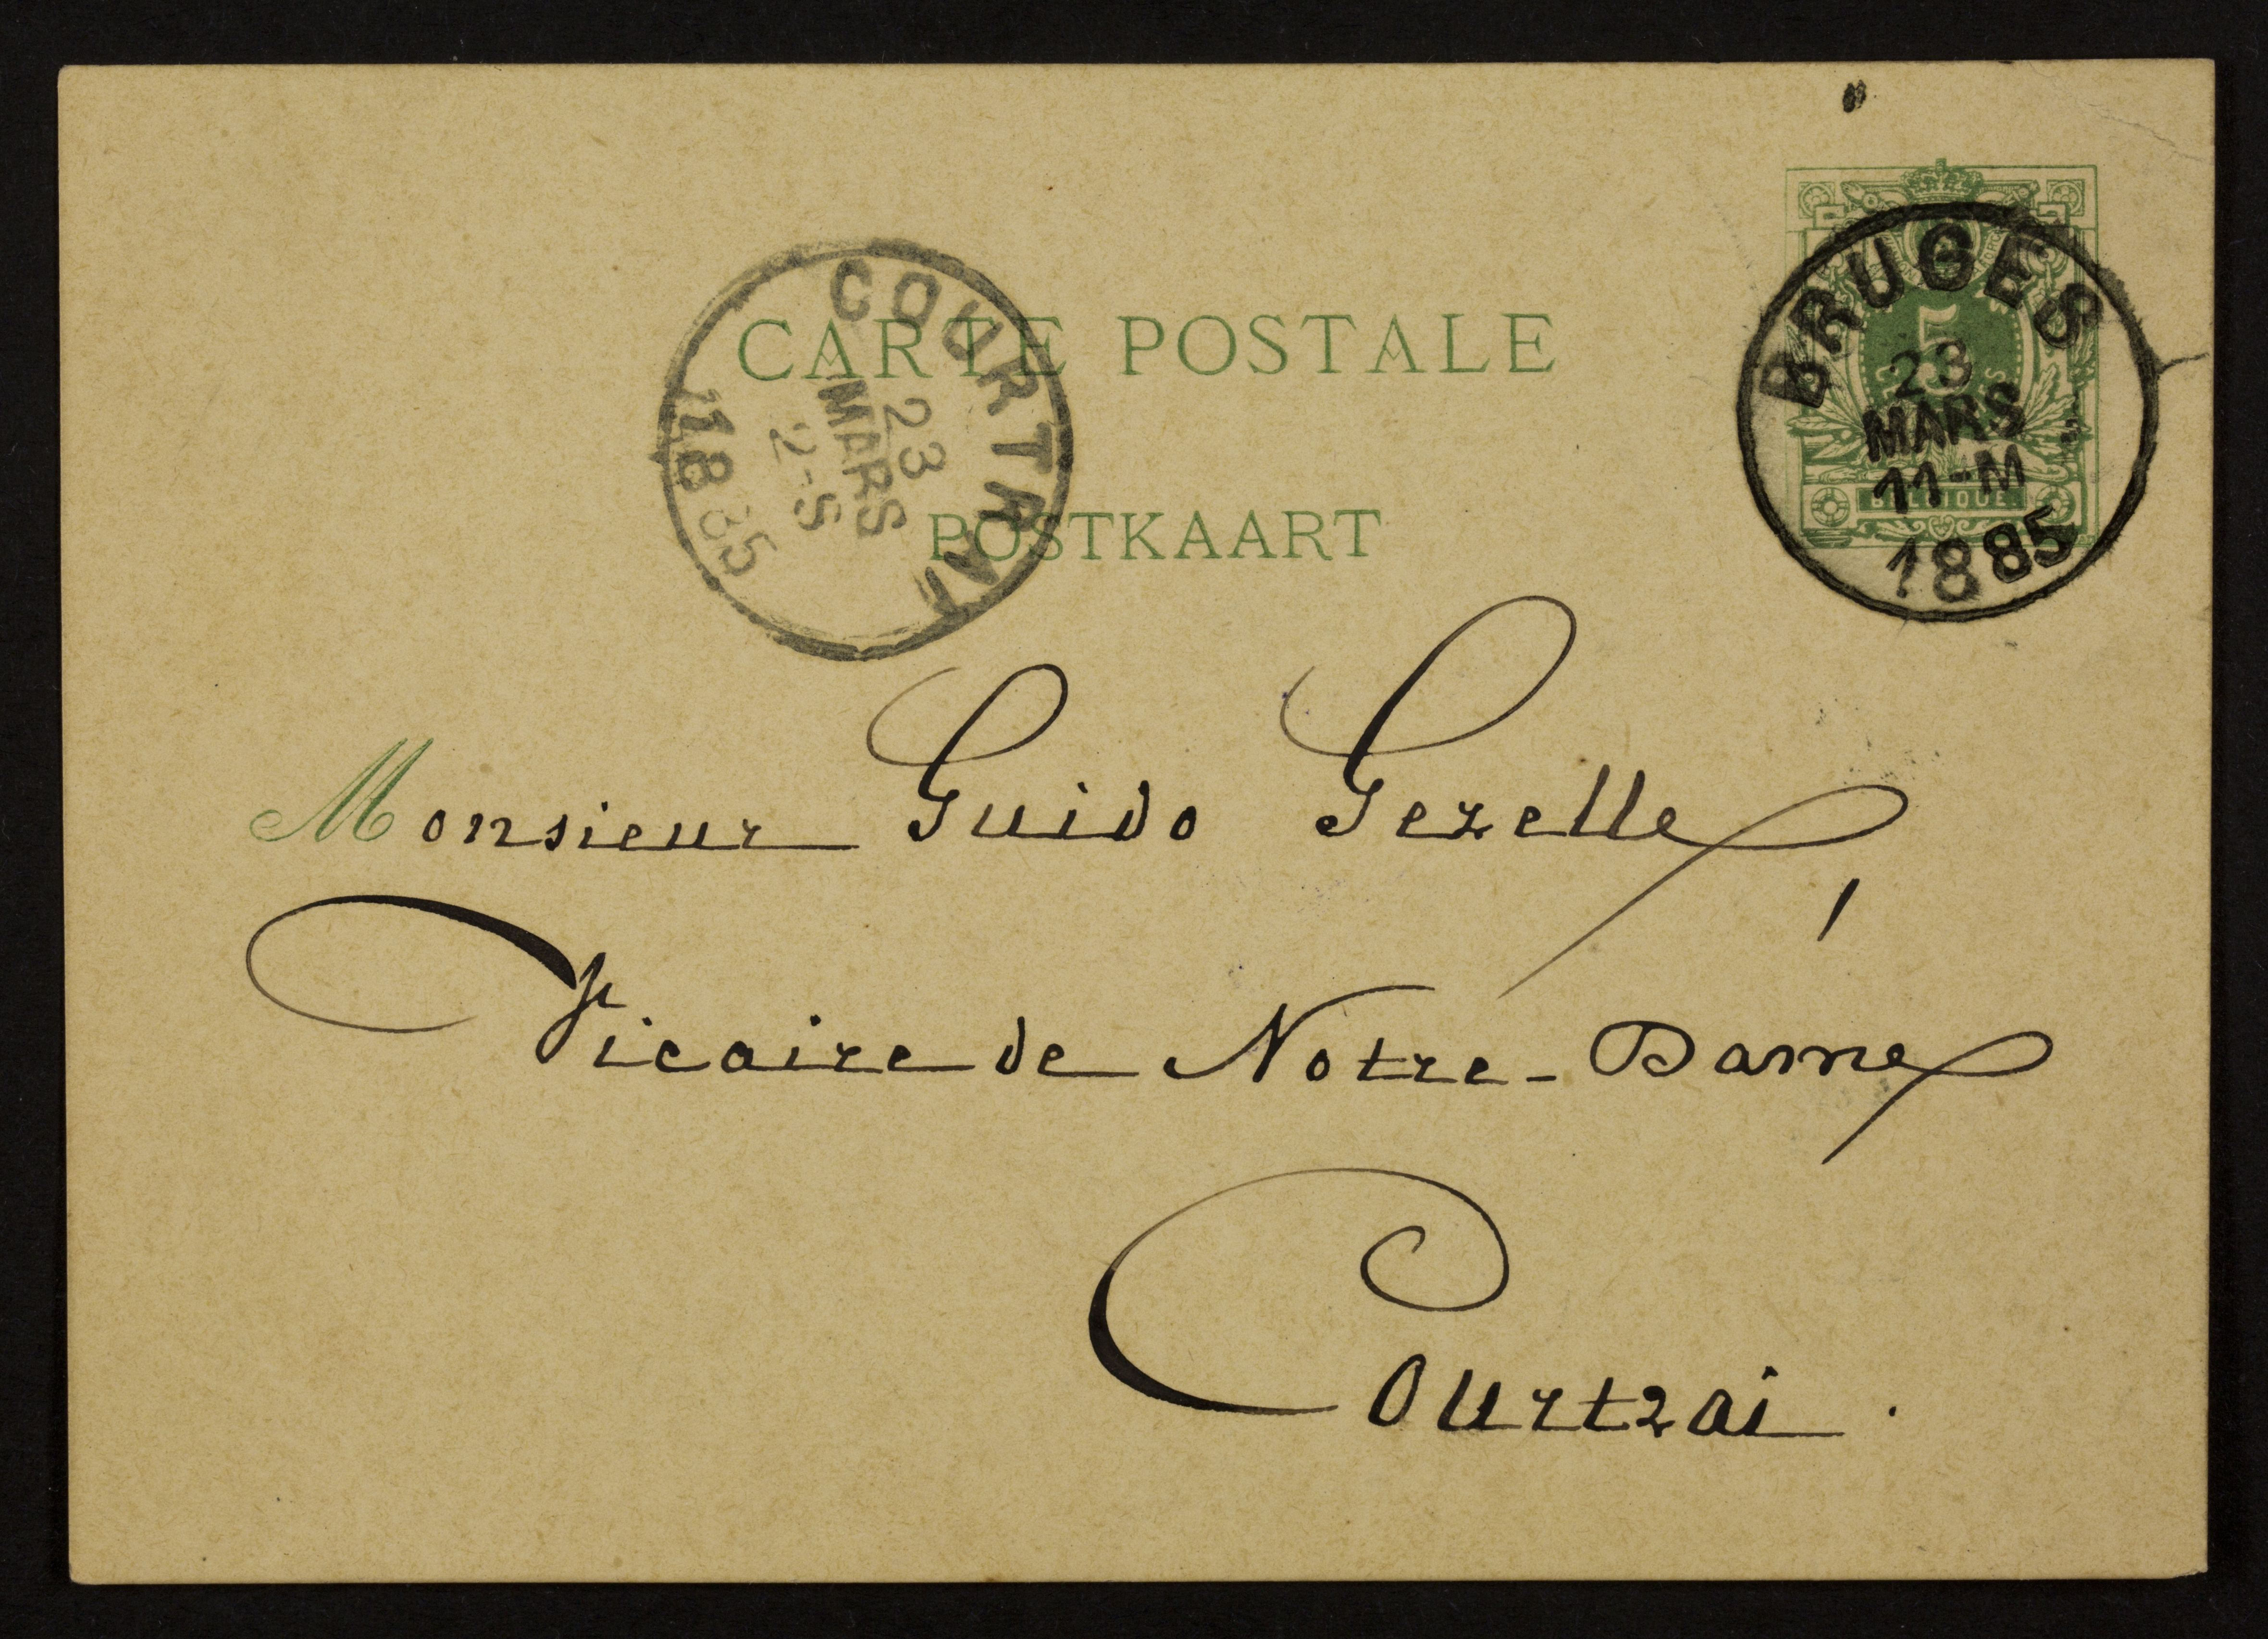 CARTE POSTALE
POSTKAART
COURTRAI
23
MARS
2-S
1885
5
BELGIQUE
BRUGES
23
MARS
11-M
1885
Monsieur Guido Gezelle
Vicaire de Notre-Dame
Courtrai.